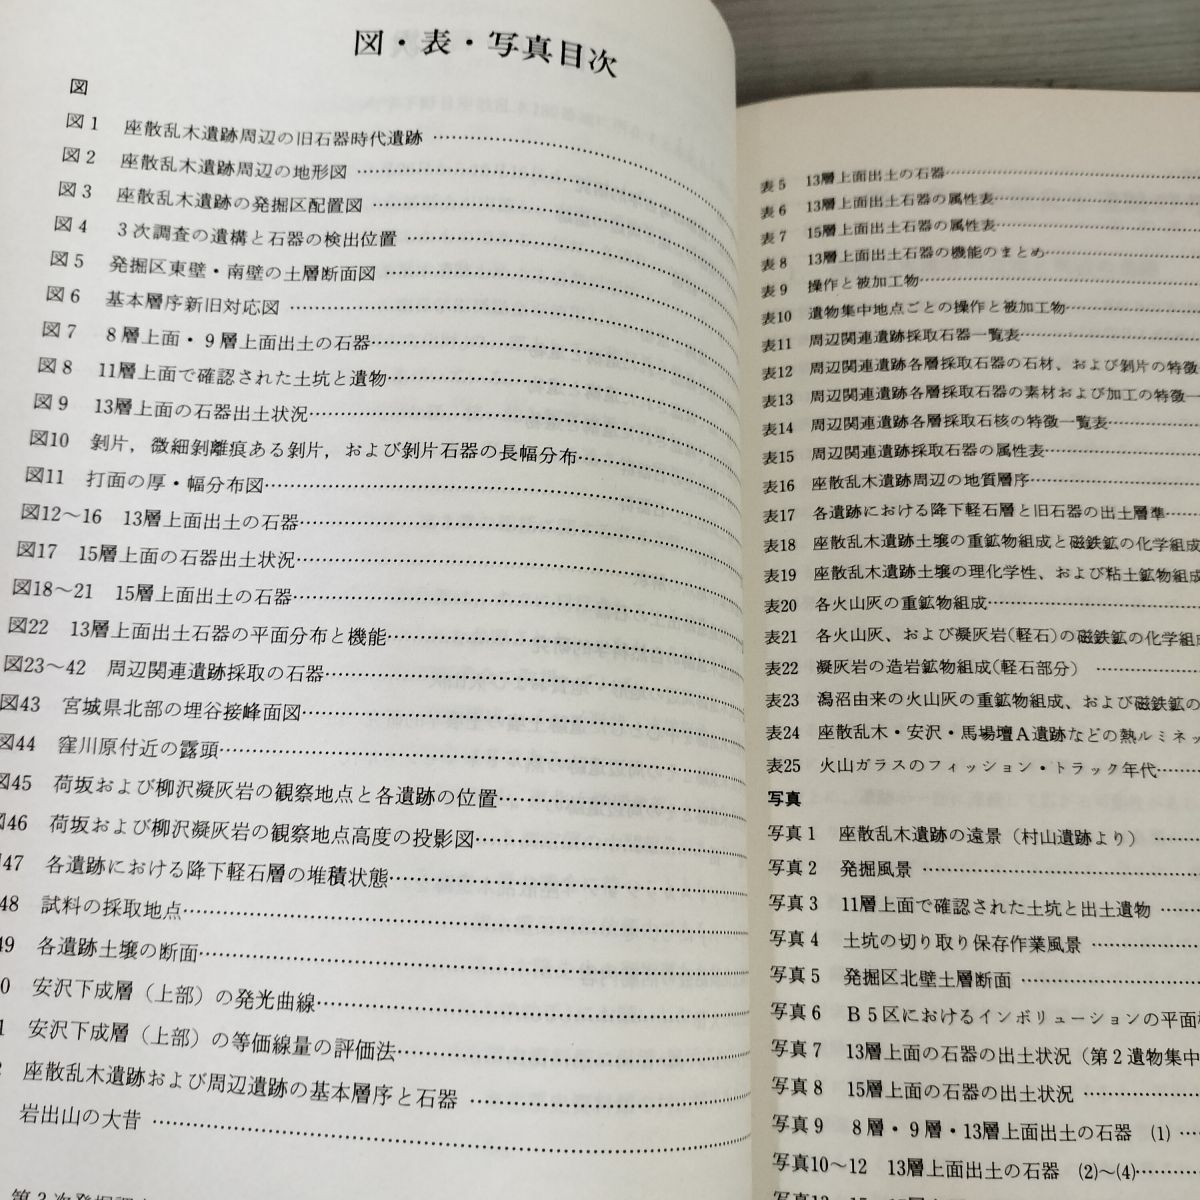 図・表・写真目次
図
図1 座散乱木遺跡周辺の旧石器時代遺跡
図2 座散乱木遺跡周辺の地形図
図3 座散乱木遺跡の発掘区配置図
図4 3次調査の遺構と石器の検出位置
図5 発掘区東壁・南壁の土層断面図
図6 基本層序新旧対応図
図7 8層上面・9層上面出土の石器
図8 11層上面で確認された土坑と遺物
図9 13層上面の石器出土状況
図10 剝片，微細剝離痕ある剝片，および剝片石器の長幅分布
図11 打面の厚・幅分布図
図12～16 13層上面出土の石器
図17 15層上面の石器出土状況
図18～21 15層上面出土の石器
図22 13層上面出土石器の平面分布と機能
図23～42 周辺関連遺跡採取の石器
図43 宮城県北部の埋谷接峰面図
図44 窪川原付近の露頭
図45 荷坂および柳沢凝灰岩の観察地点と各遺跡の位置
図46 荷坂および柳沢凝灰岩の観察地点高度の投影図
47 各遺跡における降下軽石層の堆積状態
48 試料の採取地点
49 各遺跡土壌の断面
0 安沢下成層（上部）の発光曲線
1 安沢下成層（上部）の等価線量の評価法
2 座散乱木遺跡および周辺遺跡の基本層序と石器
岩出山の大昔
第3次発掘調
表5 13層上面出土の石器
表6 13層上面出土石器の属性表
表7 15層上面出土石器の属性表
表8 13層上面出土石器の機能のまとめ
表9 操作と被加工物
表10 遺物集中地点ごとの操作と被加工物
表11 周辺関連遺跡採取石器一覧表
表12 周辺関連遺跡各層採取石器の石材、および剝片の特徴
表13 周辺関連遺跡各層採取石器の素材および加工の特徴一
表14 周辺関連遺跡各層採取石核の特徴一覧表
表15 周辺関連遺跡採取石器の属性表
表16 座散乱木遺跡周辺の地質層序
表17 各遺跡における降下軽石層と旧石器の出土層準
表18 座散乱木遺跡土壌の重鉱物組成と磁鉄鉱の化学組成
表19 座散乱木遺跡土壌の理化学性、および粘土鉱物組成
表20 各火山灰の重鉱物組成
表21 各火山灰、および凝灰岩(軽石)の磁鉄鉱の化学組成
表22 凝灰岩の造岩鉱物組成(軽石部分)
表23 潟沼由来の火山灰の重鉱物組成、および磁鉄鉱の
表24 座散乱木・安沢・馬場壇A遺跡などの熱ルミネッ
表25 火山ガラスのフィッション・トラック年代
写真
写真1 座散乱木遺跡の遠景（村山遺跡より）
写真2 発掘風景
写真3 11層上面で確認された土坑と出土遺物
写真4 土坑の切り取り保存作業風景
写真5 発掘区北壁土層断面
写真6 B5区におけるインボリューションの平面
写真7 13層上面の石器の出土状況（第2遺物集中
写真8 15層上面の石器の出土状況
写真9 8層・9層・13層上面出土の石器 (1)
写真10～12 13層上面出土の石器 (2)～(4)